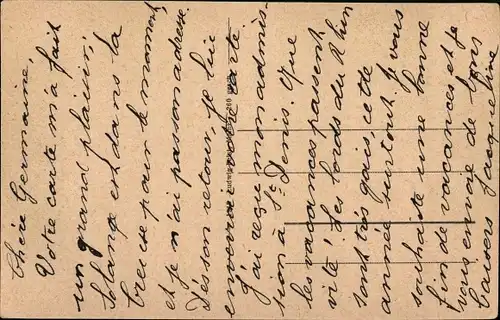 Chère Germaine,
Votre carte m'a fait
un grand plaisir,
Solange est dans la
Creuse pour le moment,
et je n'ai pas son adresse.
Dès son retour, je lui
enverrai votre carte
J'ai reçu mon admis-
sion à St Denis. Que
les vacances passent
vite! Les bords du Rhin
sont très gais, cette
année surtout. Je vous
souhaite une bonne
fin de vacances et je
vous envoie de bons
baisers Jacqueline